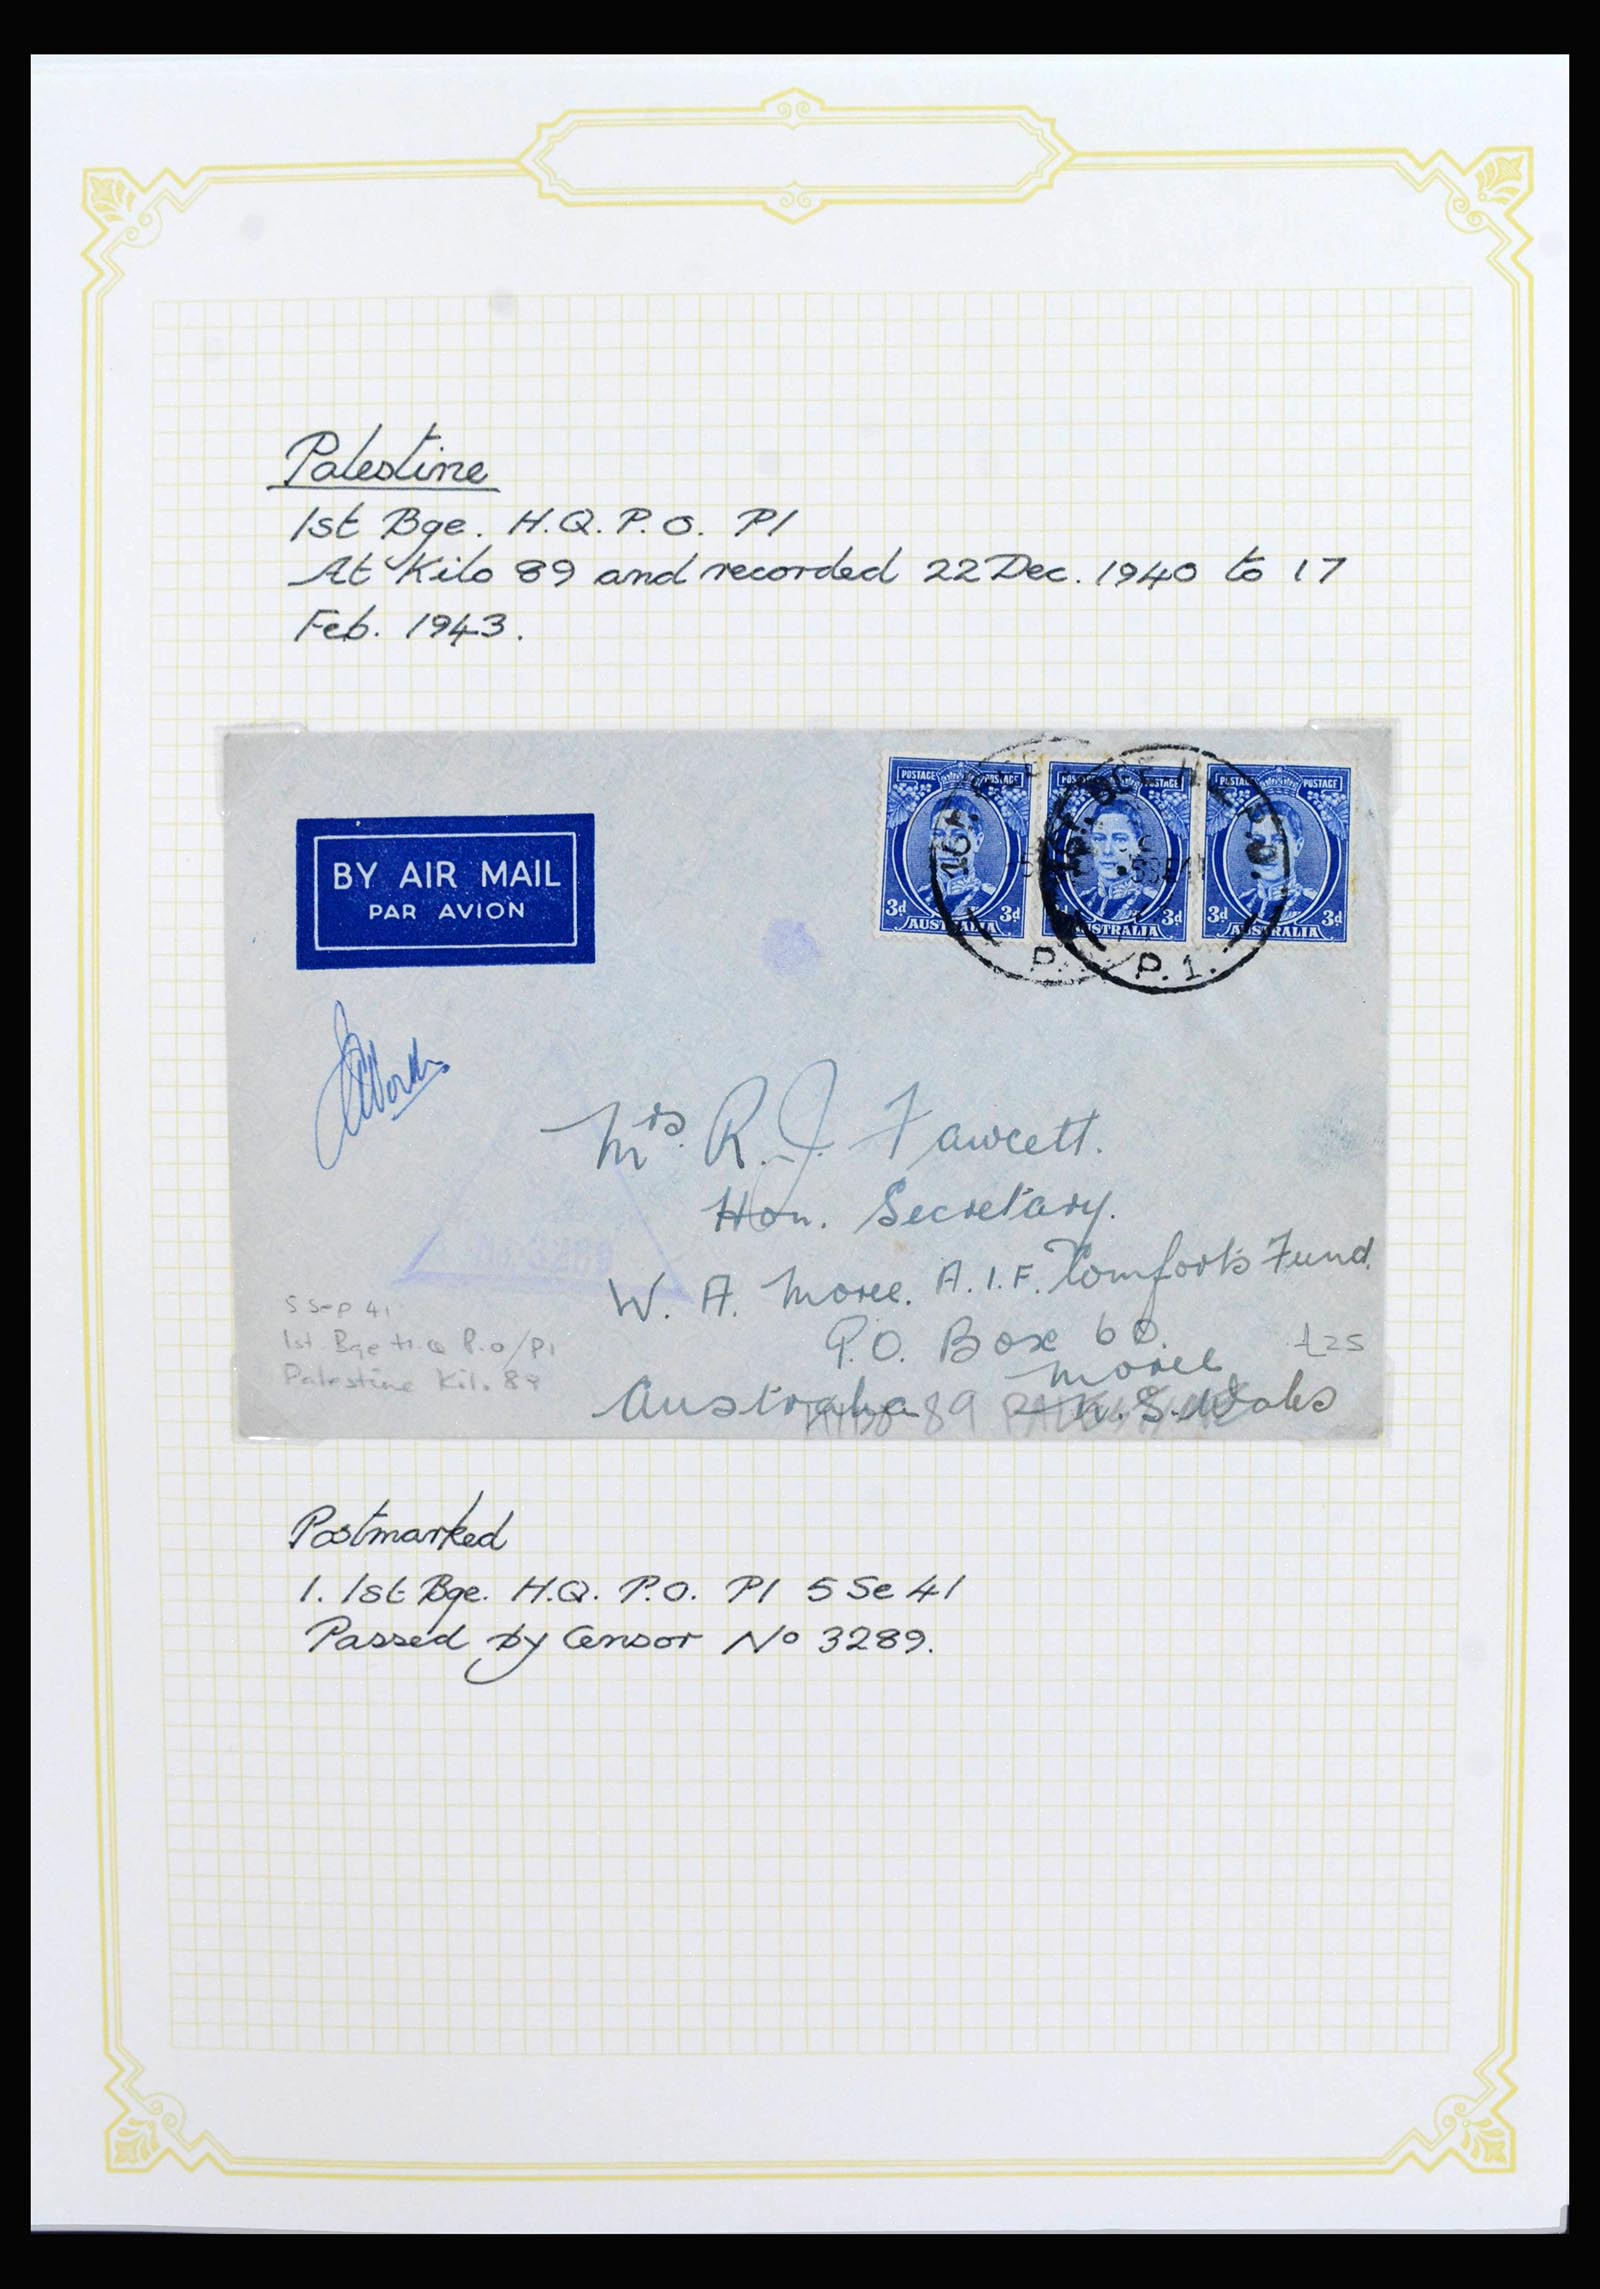 Palestine
1st Bge. H.Q. P.O. P1
At Kilo 89 and recorded 22 Dec. 1940 to 17
Feb. 1943.
BY AIR MAIL
PAR AVION
POSTAGE POSTAGE
3d 3d
AUSTRALIA
POSTAGE POSTAGE
3d
AUSTRALIA
POSTAGE POSTAGE
3d 3d
AUSTRALIA
P. 1.
Mrs. R. J. Fawcett.
Hon. Secretary.
W. A. Moree. A.I.F. Comforts Fund.
P.O. Box 60.
Moree
Australia N.S. Wales
5 Sep 41
1st Bge H.Q P.O/P1
Palestine Kilo 89
£25
89
Postmarked
1. 1st Bge. H.Q. P.O. P1 5 Se 41
Passed by Censor No 3289.